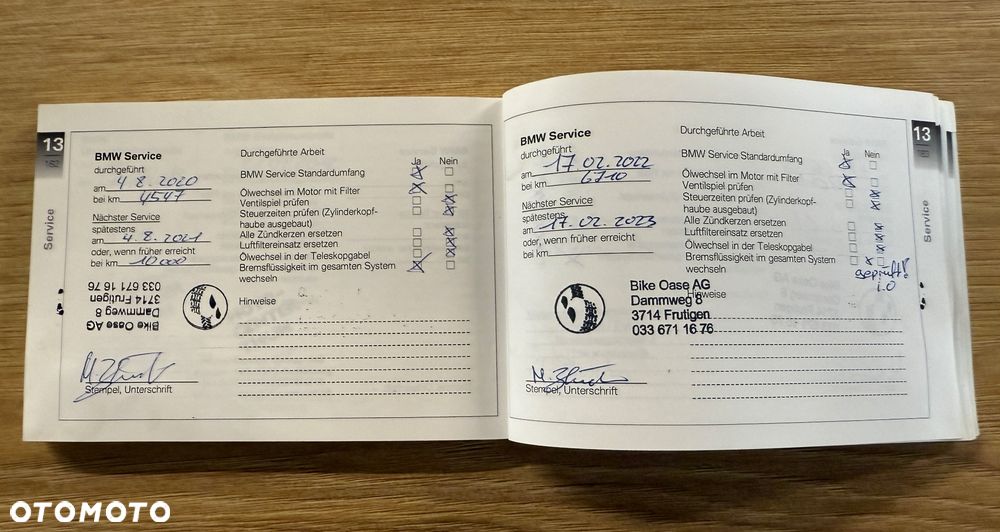 13
162
Service
BMW Service
durchgeführt
am 4 8. 2020
bei km 4547
Nächster Service
spätestens
am 4. 8. 2021
oder, wenn früher erreicht
bei km 10 000
Bike Oase AG
Dammweg 8
3714 Frutigen
033 671 16 76
Stempel, Unterschrift
Durchgeführte Arbeit
Ja Nein
BMW Service Standardumfang
Ölwechsel im Motor mit Filter
Ventilspiel prüfen
Steuerzeiten prüfen (Zylinderkopf-
haube ausgebaut)
Alle Zündkerzen ersetzen
Luftfiltereinsatz ersetzen
Ölwechsel in der Teleskopgabel
Bremsflüssigkeit im gesamten System
wechseln
Hinweise
BMW Service
durchgeführt
am 17 02. 2022
bei km 6710
Nächster Service
spätestens
am 17. 02. 2023
oder, wenn früher erreicht
bei km
Bike Oase AG
Dammweg 8
3714 Frutigen
033 671 16 76
Stempel, Unterschrift
Durchgeführte Arbeit
Ja Nein
BMW Service Standardumfang
Ölwechsel im Motor mit Filter
Ventilspiel prüfen
Steuerzeiten prüfen (Zylinderkopf-
haube ausgebaut)
Alle Zündkerzen ersetzen
Luftfiltereinsatz ersetzen
Ölwechsel in der Teleskopgabel
Bremsflüssigkeit im gesamten System
wechseln
geprüft!
i.O
Hinweise
13
Service
OTOMOTO